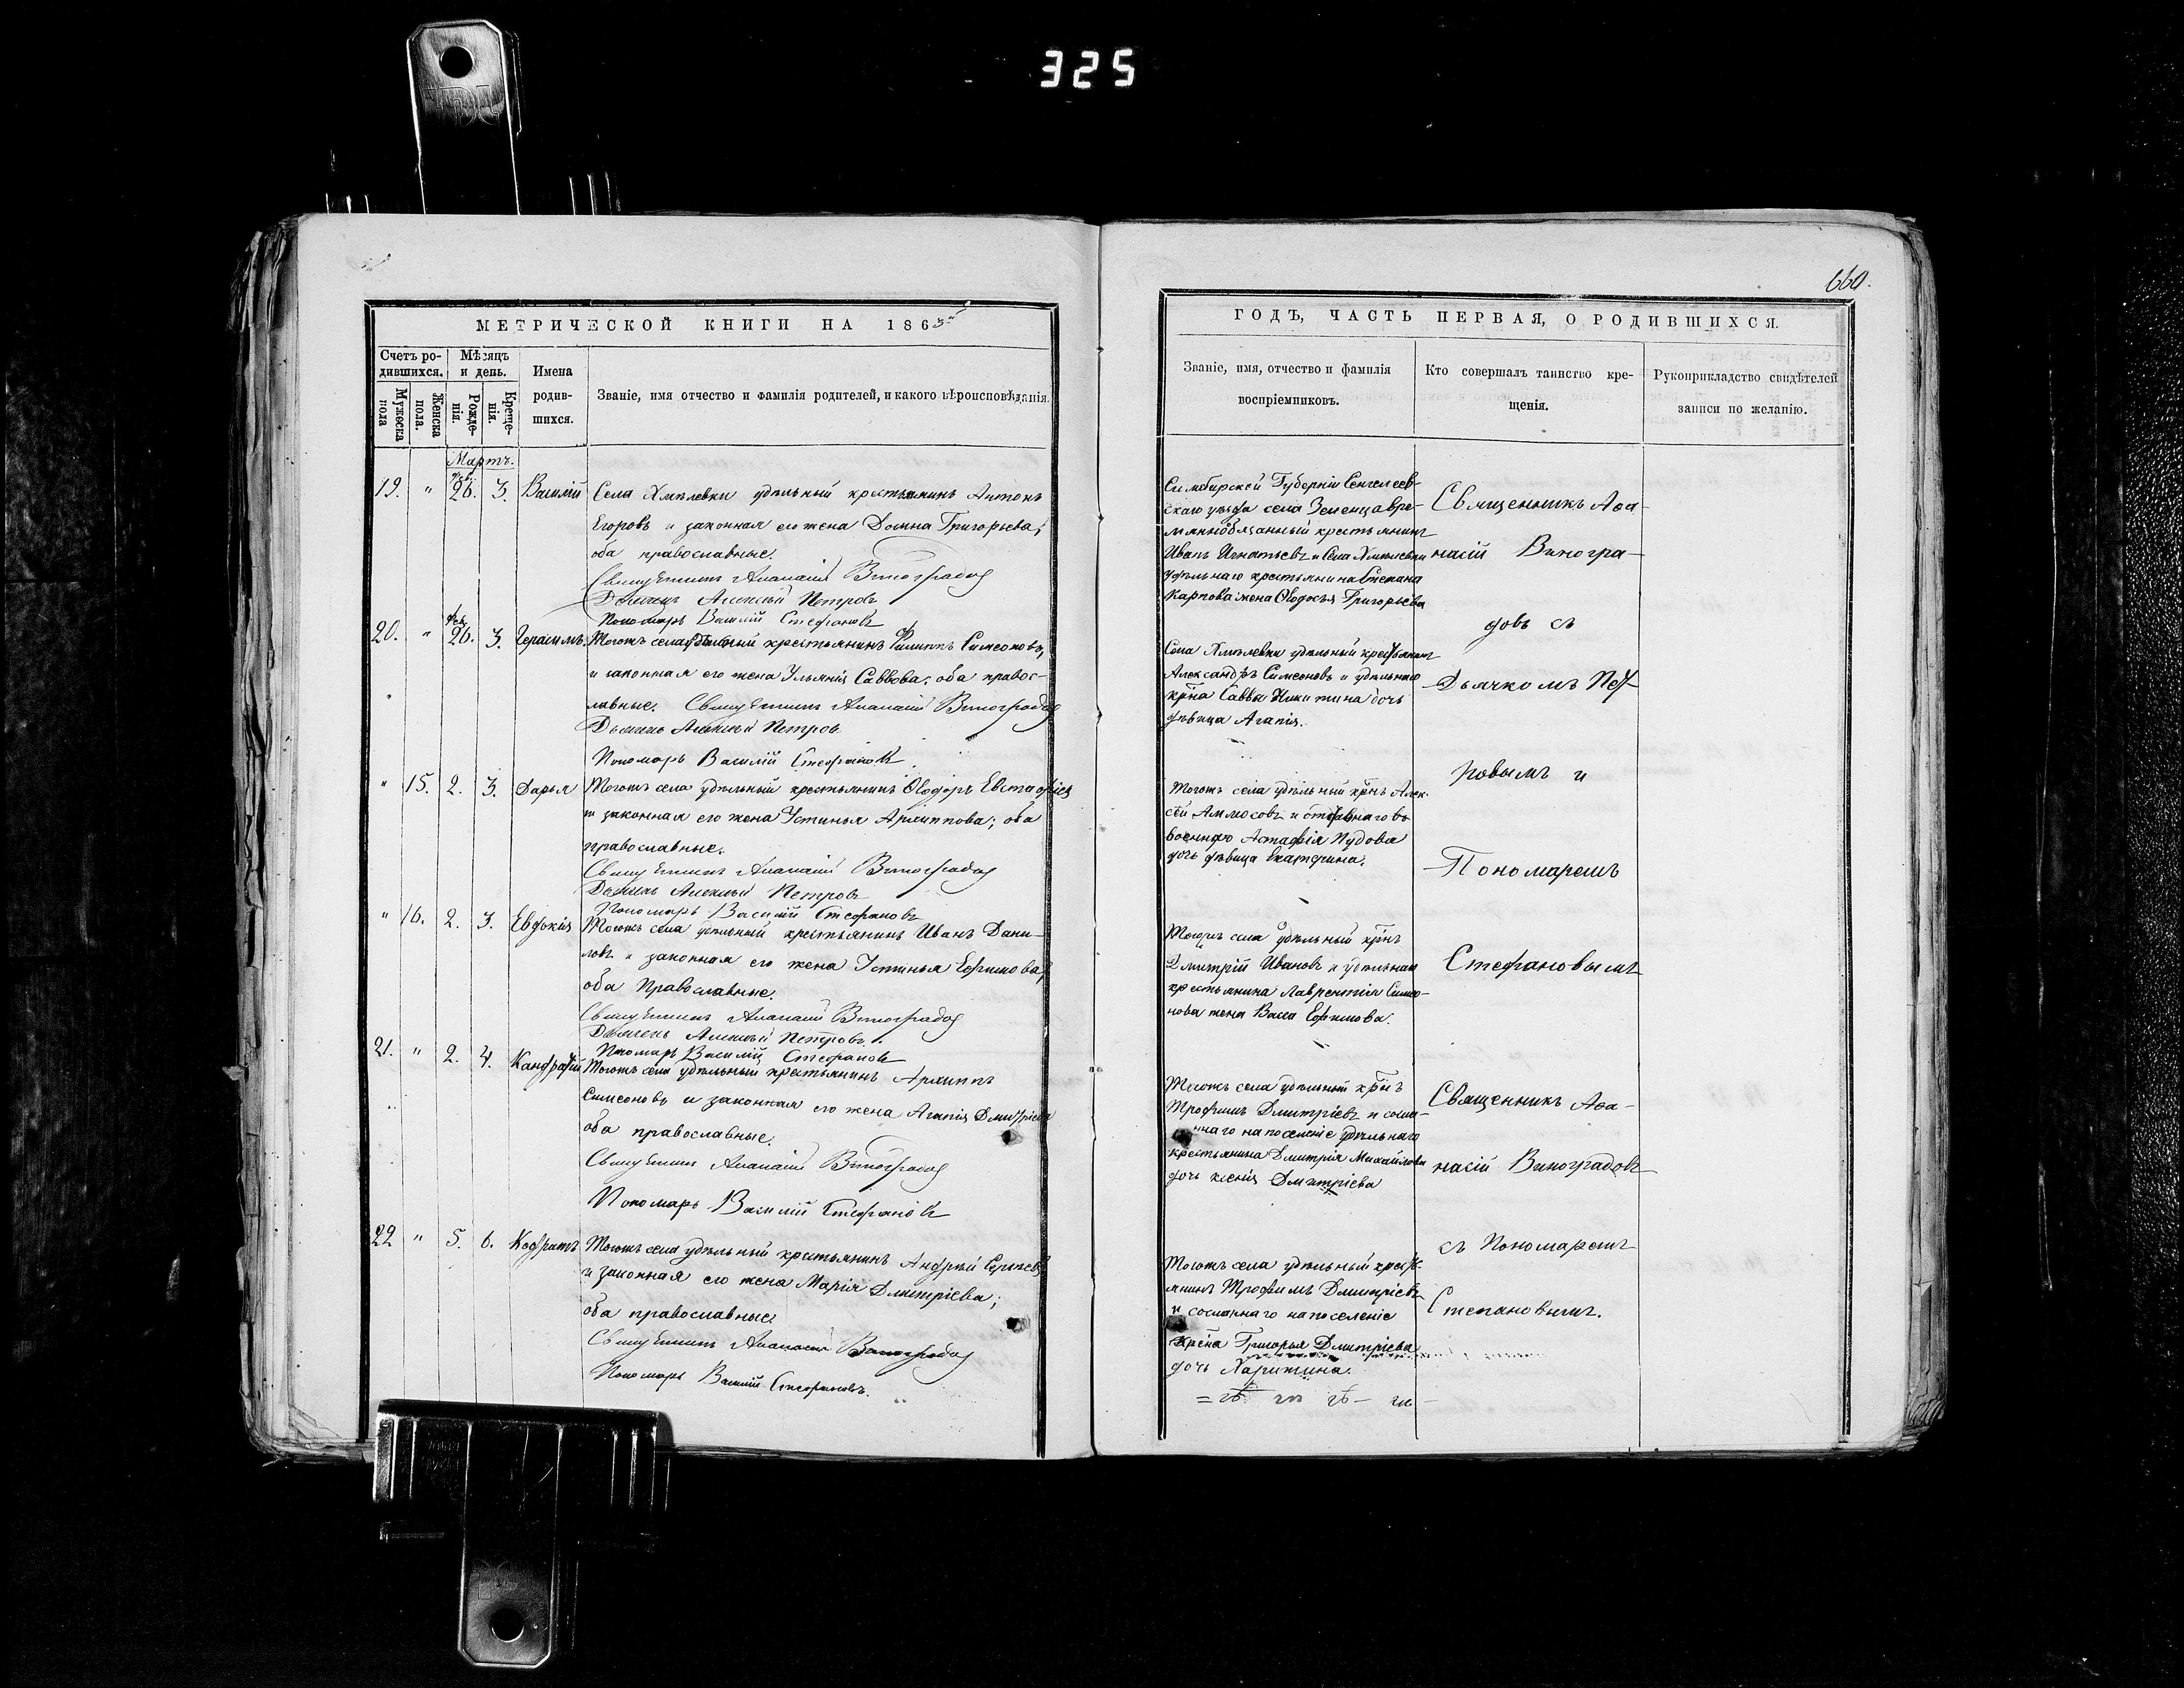 325
660.
МЕТРИЧЕСКОЙ КНИГИ НА 1865
Счетъ ро-
дившихся.
Мужеска
пола
Женска
пола.
Мѣсяцъ
и день.
Рожде-
нія.
Креще-
нія.
Имена
родив-
шихся.
Званіе, имя отчество и фамилія родителей, и какого вѣроисповѣданія.
Мартъ.
19. " фев. 26. 3. Василій Села Хмѣлевки удѣльный крестьянинъ Антонъ
Егоровъ и законная его жена Домна Григорьева;
оба православные.
Священникъ Аѳанасій Виноградов
Дьячекъ Алексѣй Петровъ
Пономарь Василій Стефановъ
20. " фев. 26. 3. Герасимъ. Тогожъ села удѣльный крестьянинъ Филиппъ Симеоновъ,
и законная его жена Ульянія Саввова; оба правос-
лавные. Священникъ Аѳанасій Виноградов
Дьячекъ Алексѣй Петров
Пономарь Василій Стефановъ
" 15. 2. 3. Дарья Тогожъ села удѣльный крестьянинъ Ѳеодоръ Евстафіев
и законная его жена Устинья Архиппова; оба
православные.
Священникъ Аѳанасій Виноградов
Дьячекъ Алексѣй Петровъ
Пономарь Василій Стефановъ
" 16. 2. 3. Евдокія Тогожъ села удѣльный крестьянинъ Иванъ Дани-
ловъ и законная его жена Устинья Ефимова,
оба Православные.
Священникъ Аѳанасій Виноградов
Дьячекъ Алексѣй Петровъ.
Пономарь Василій Стефановъ
21. " 2. 4. Кандратій Тогожъ села удѣльный крестьянинъ Архиппъ
Симеоновъ и законная его жена Агапія Дмитріева
оба православные.
Священникъ Аѳанасій Виноградов
Пономарь Василій Стефановъ
22 " 5. 6. Кодратъ Тогожъ села удѣльный крестьянинъ Андрей Сергѣевъ
и законная его жена Марія Дмитріева;
оба православные.
Священникъ Аѳанасій Виноградов
Пономарь Василій Стефановъ.
ГОДЪ, ЧАСТЬ ПЕРВАЯ, О РОДИВШИХСЯ.
Званіе, имя, отчество и фамилія
воспріемниковъ.
Кто совершалъ таинство кре-
щенія.
Рукоприкладство свидѣтелей
записи по желанію.
Симбирской Губерніи Сенгилеев-
скаго уѣзда села Зеленца вре-
меннообязанный крестьянинъ
Иванъ Игнатьевъ и Села Хмѣлевки
удѣльнаго крестьянина Степана
Карпова жена Ѳеодосья Григорьева
Села Хмѣлевки удѣльный крестьянинъ
Александръ Симеоновъ и удѣльнаго
крѣна Саввы Никитина дочь
дѣвица Агапія.
Тогожъ села удѣльный крнъ Алек-
сѣй Аммосовъ и отставнаго во
военнаго Астафія Пудова
дочь дѣвица Екатерина.
Тогожъ села удѣльный крнъ
Дмитрій Ивановъ и удѣльнаго
крестьянина Лаврентія Симео-
нова жена Васса Ефимова.
Тогожъ села удѣльный крнъ
Трофимъ Дмитріевъ и сосла-
ннаго на поселеніе удѣльнаго
крестьянина Дмитрія Михайлова
дочь Ксенія Дмитріева
Тогожъ села удѣльный кресть-
янинъ Трофимъ Дмитріевъ
и сосланнаго на поселеніе
крѣна Григорья Дмитріева
дочь Харитина.
Священникъ Аѳа-
насій Виногра-
довъ съ
Дьячкомъ Пет-
ровымъ и
Пономаремъ
Стефановымъ
Священникъ Аѳа-
насій Виноградовъ
съ Пономаремъ
Степановымъ.